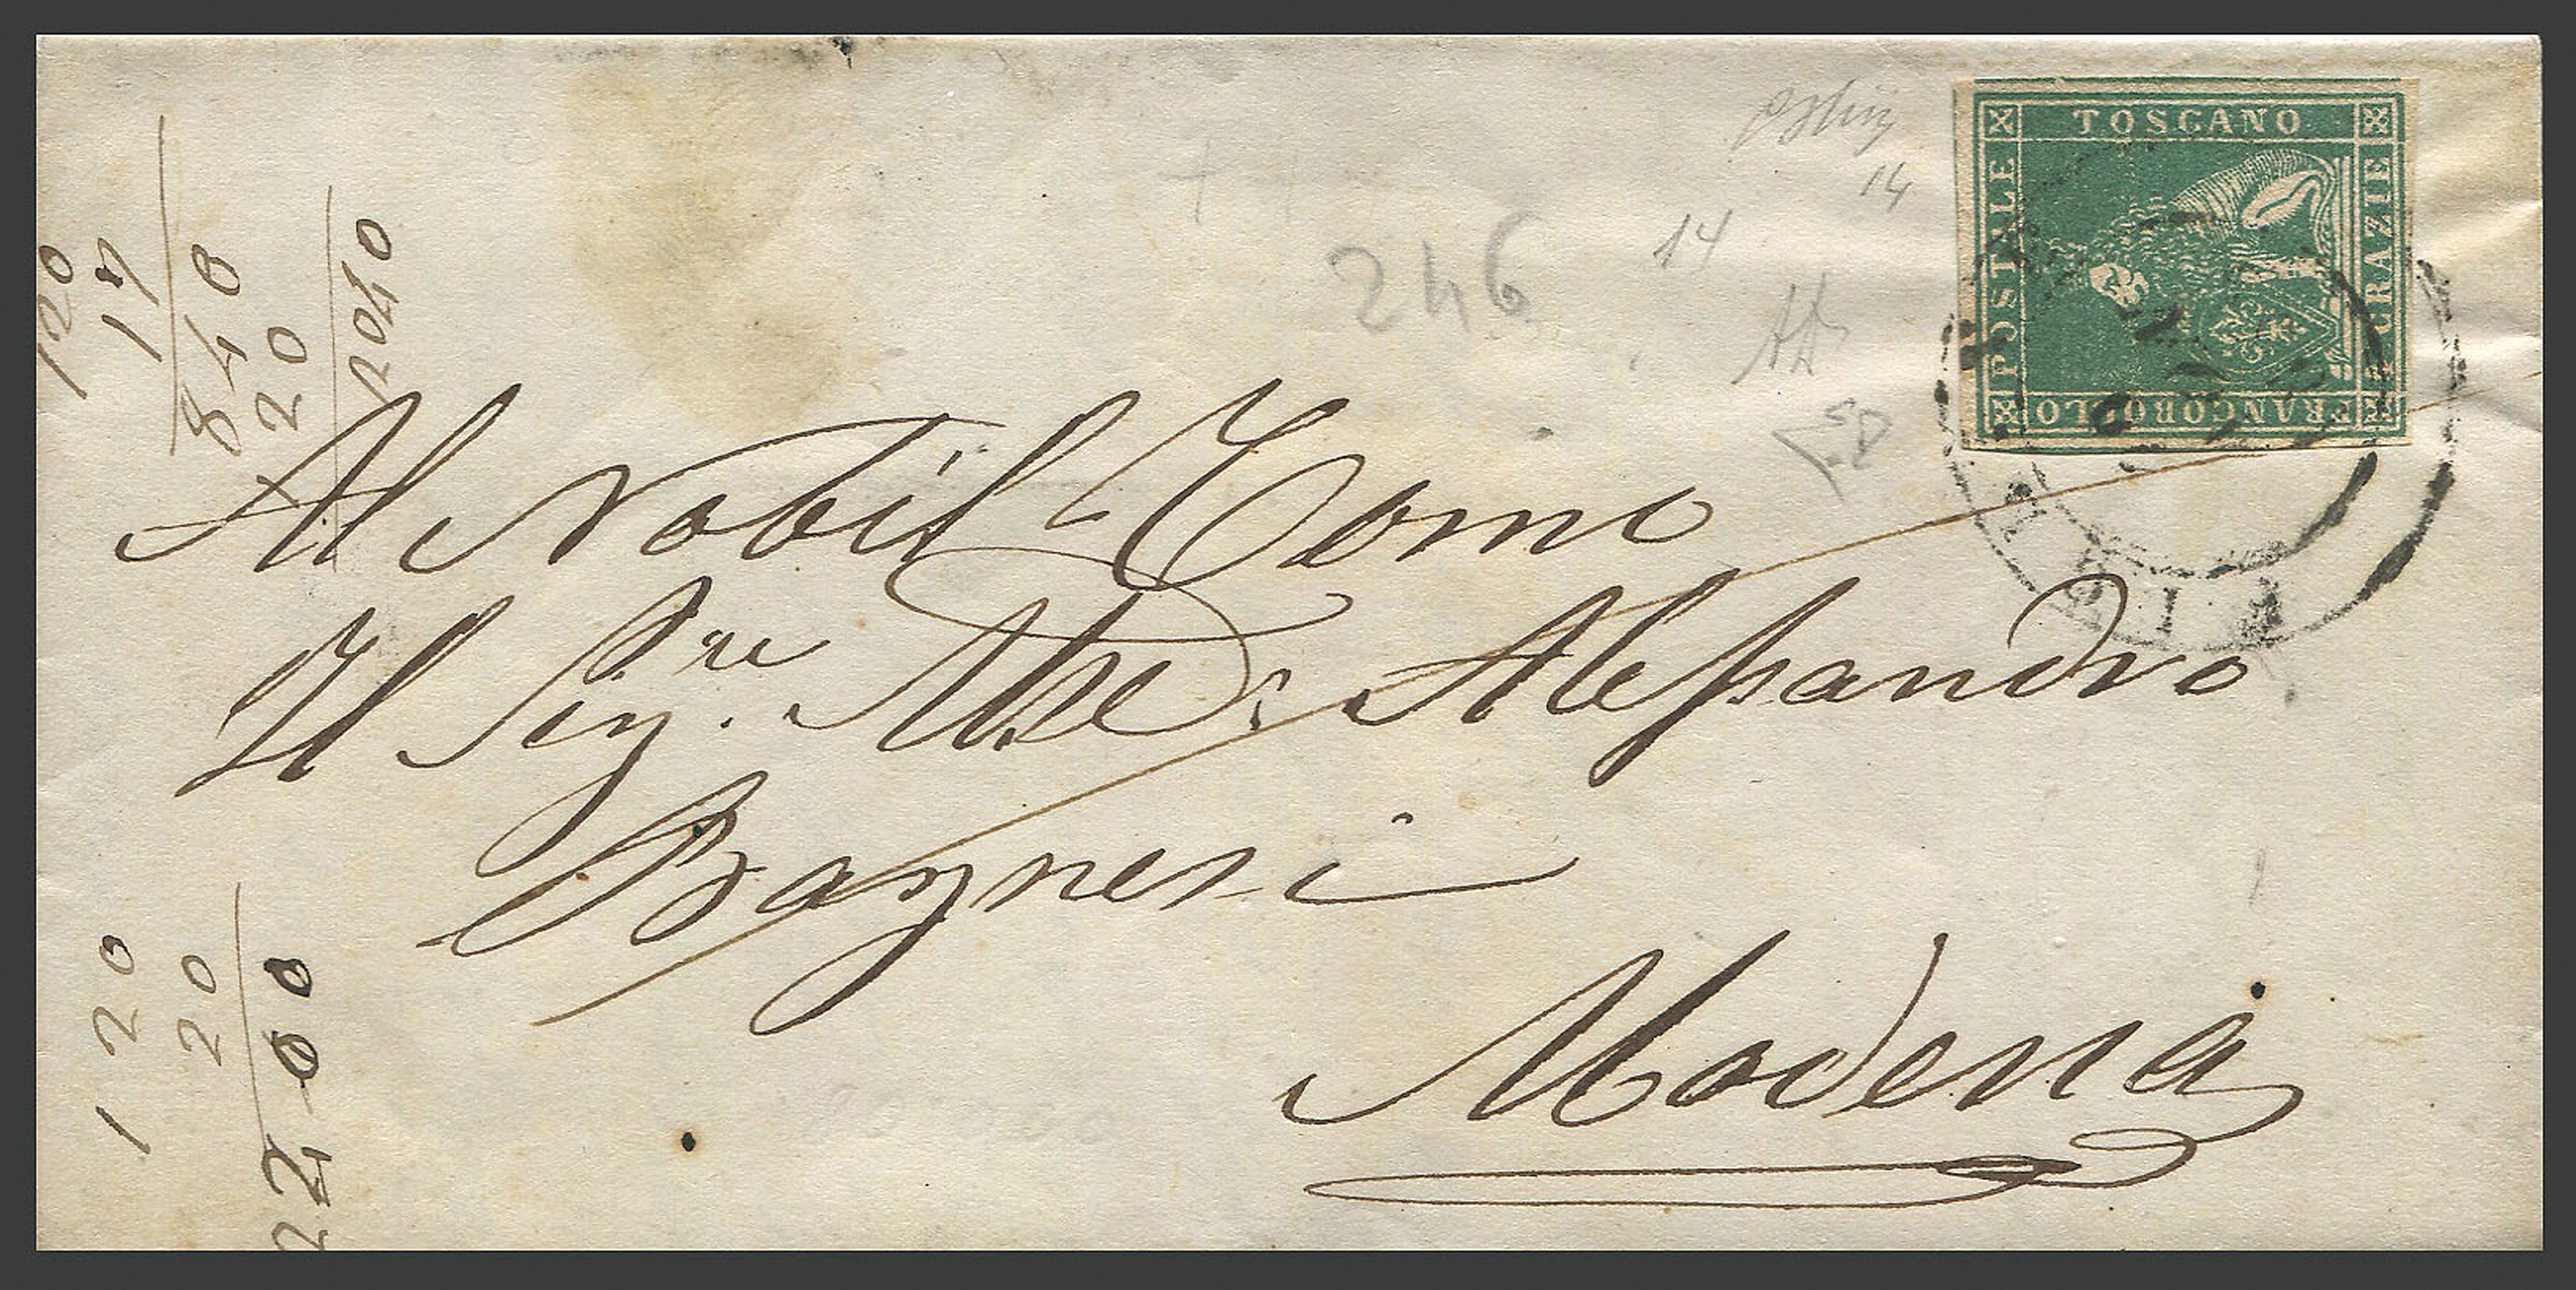 120
17
840
20
2040
TOSCANO
POSTALE
4 CRAZIE
FRANCOBOLLO
14
14
246
Al Nobil Uomo
Il Sig.re Mse: Alessandro
Bagnesi
Modena
120
20